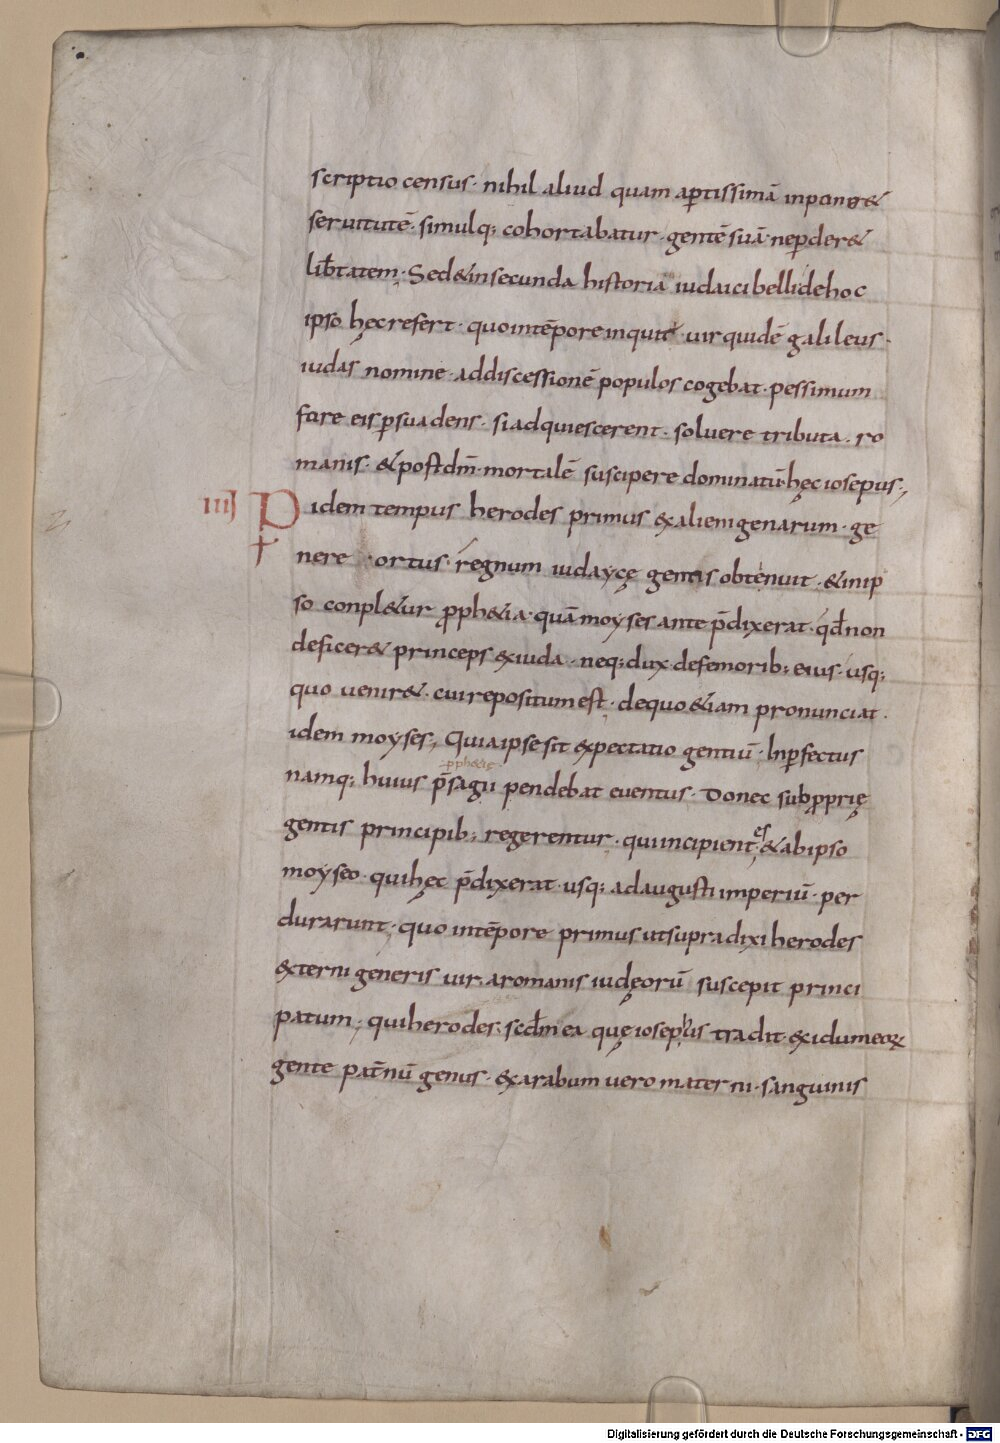 scriptio census · nihil aliud quam aꝑtissimā inponer&
seruitutē · simulq; cohortabatur · gentē suā · neꝑder&
lib̄tatem · Sed&insecunda historia iudaici belli dehoc
ipso hęc refert · quo intēpore inquit · uir quidē galileus ·
iudas nomine · addiscessionē populos cogebat · pessimum
fore eis ꝑsuadens · si adquiescerent · soluere tributa · ro
manis · &postdm̄ · mortalē suscipere dominatū · hęc iosepus ;
IIIJ P idem tempus herodes primus exalienigenarum · ge
nere · ortus · regnum iudaycę gentis obtenuit · &inip
so conpl&ur ꝓph&ia · quā moyses ante p̄dixerat · qd̄ non
deficer& princeps exiuda · neq; dux defemorib; eius · usq;
quo uenir& · cui repositum est · dequo &iam pronunciat ·
idem moyses ; Quia ipse sit expectatio gentiū · Inꝑfectus
ꝓph&ię
namq; huius p̄sagii pendebat euentus · Donec subꝓprię
gentis principib; regerentur · qui incipientes &abipso
moyseo · qui hęc p̄dixerat · usq; adaugusti imperiū · per
durarunt · quo intēpore primus utsupra dixi herodes
externi generis uir · aromanis iudęorū suscepit princi
patum ; qui herodes · scd̄m ea quę iosephus tradit · exidumeoꝝ
gente pat̄nū genus · exarabum uero materni · sanguinis
Digitalisierung gefördert durch die Deutsche Forschungsgemeinschaft - DFG